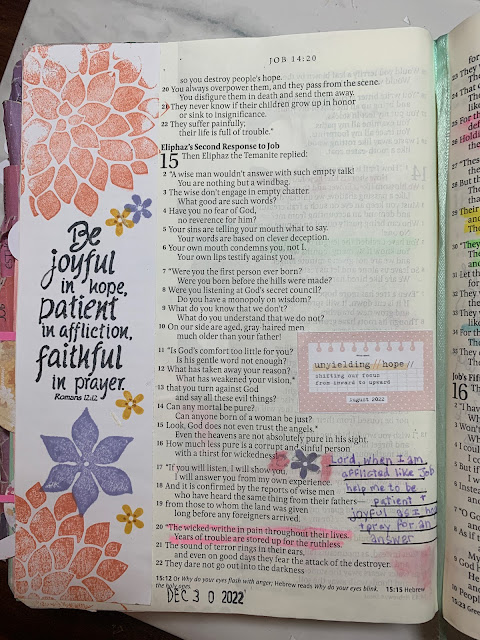 JOB 14:20
so you destroy people's hope.
20 You always overpower them, and they pass from the scene.
You disfigure them in death and send them away.
21 They never know if their children grow up in honor
or sink to insignificance.
22 They suffer painfully;
their life is full of trouble."
Eliphaz's Second Response to Job
15 Then Eliphaz the Temanite replied:
2 "A wise man wouldn't answer with such empty talk!
You are nothing but a windbag.
3 The wise don't engage in empty chatter.
What good are such words?
4 Have you no fear of God,
no reverence for him?
5 Your sins are telling your mouth what to say.
Your words are based on clever deception.
6 Your own mouth condemns you, not I.
Your own lips testify against you.
7 "Were you the first person ever born?
Were you born before the hills were made?
8 Were you listening at God's secret council?
Do you have a monopoly on wisdom?
9 What do you know that we don't?
What do you understand that we do not?
10 On our side are aged, gray-haired men
much older than your father!
11 "Is God's comfort too little for you?
Is his gentle word not enough?
12 What has taken away your reason?
What has weakened your vision,*
13 that you turn against God
and say all these evil things?
14 Can any mortal be pure?
Can anyone born of a woman be just?
15 Look, God does not even trust the angels.*
Even the heavens are not absolutely pure in his sight.
16 How much less pure is a corrupt and sinful person
with a thirst for wickedness!
17 "If you will listen, I will show you.
I will answer you from my own experience.
18 And it is confirmed by the reports of wise men
who have heard the same thing from their fathers—
19 from those to whom the land was given
long before any foreigners arrived.
20 "The wicked writhe in pain throughout their lives.
Years of trouble are stored up for the ruthless.
21 The sound of terror rings in their ears,
and even on good days they fear the attack of the destroyer.
22 They dare not go out into the darkness
15:12 Or Why do your eyes flash with anger; Hebrew reads Why do your eyes blink.
15:15 Hebrew
the holy ones.
DEC 30 2022
Be
joyful
in hope,
patient
in affliction,
faithful
in prayer.
Romans 12:12
unyielding //hope//
shifting our focus
from inward to upward
august 2022
Lord, when I am
afflicted like Job
help me to be
patient +
joyful as I
+ pray for an
answer